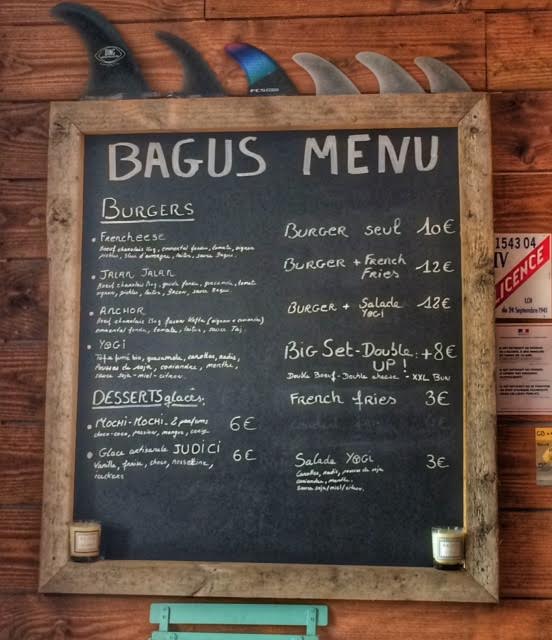 BAGUS MENU
BURGERS
• FRENCHEESE
Boeuf charolais 180g, emmental fondu, tomate, oignon
pickles, bleu d'auvergne, laitue, sauce Bagus.
• JALAN JALAN
Boeuf charolais 180g, gouda fondu, guacamole, tomate
oignon, pickles, laitue, Bacon, sauce Bagus.
• ANCHOR
Boeuf charolais 180g façon Kefta (oignon + coriandre)
emmental fondu, tomate, laitue, sauce
• YOGI
Tofu fumé bio, guacamole, carottes, radis,
Pousses de soja, coriandre, menthe,
sauce soja-miel-citron.
DESSERTS glacés.
• MOCHI-MOCHI. 2 parfums 6€
choco-coco, passion, mangue, cerise
• Glace artisanale JUDICI 6€
Vanille, fraise, choco, noisettine,
BURGER seul 10€
BURGER + FRENCH FRIES 12€
BURGER + SALADE YOGI 12€
BIG SET-DOUBLE UP! : +8€
DOUBLE BOEUF-DOUBLE CHEESE - XXL BUN
FRENCH FRIES 3€
SALADE YOGI 3€
Carottes, radis, pousses de soja
coriandre, menthe.
Sauce soja/miel/citron.
FCS
1543 04
IV
LICENCE
LOI
du 24 Septembre 1941